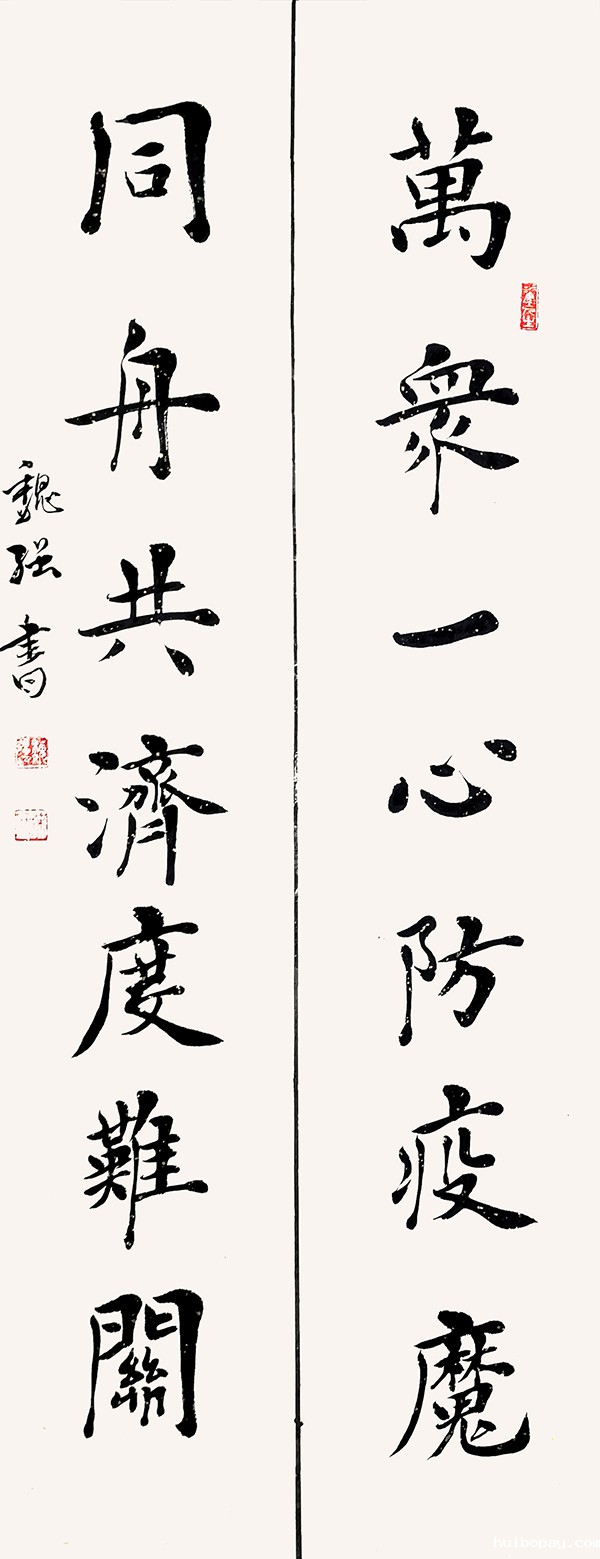 萬衆一心防疫魔
同舟共濟度難關
魏强書
huibopay.com